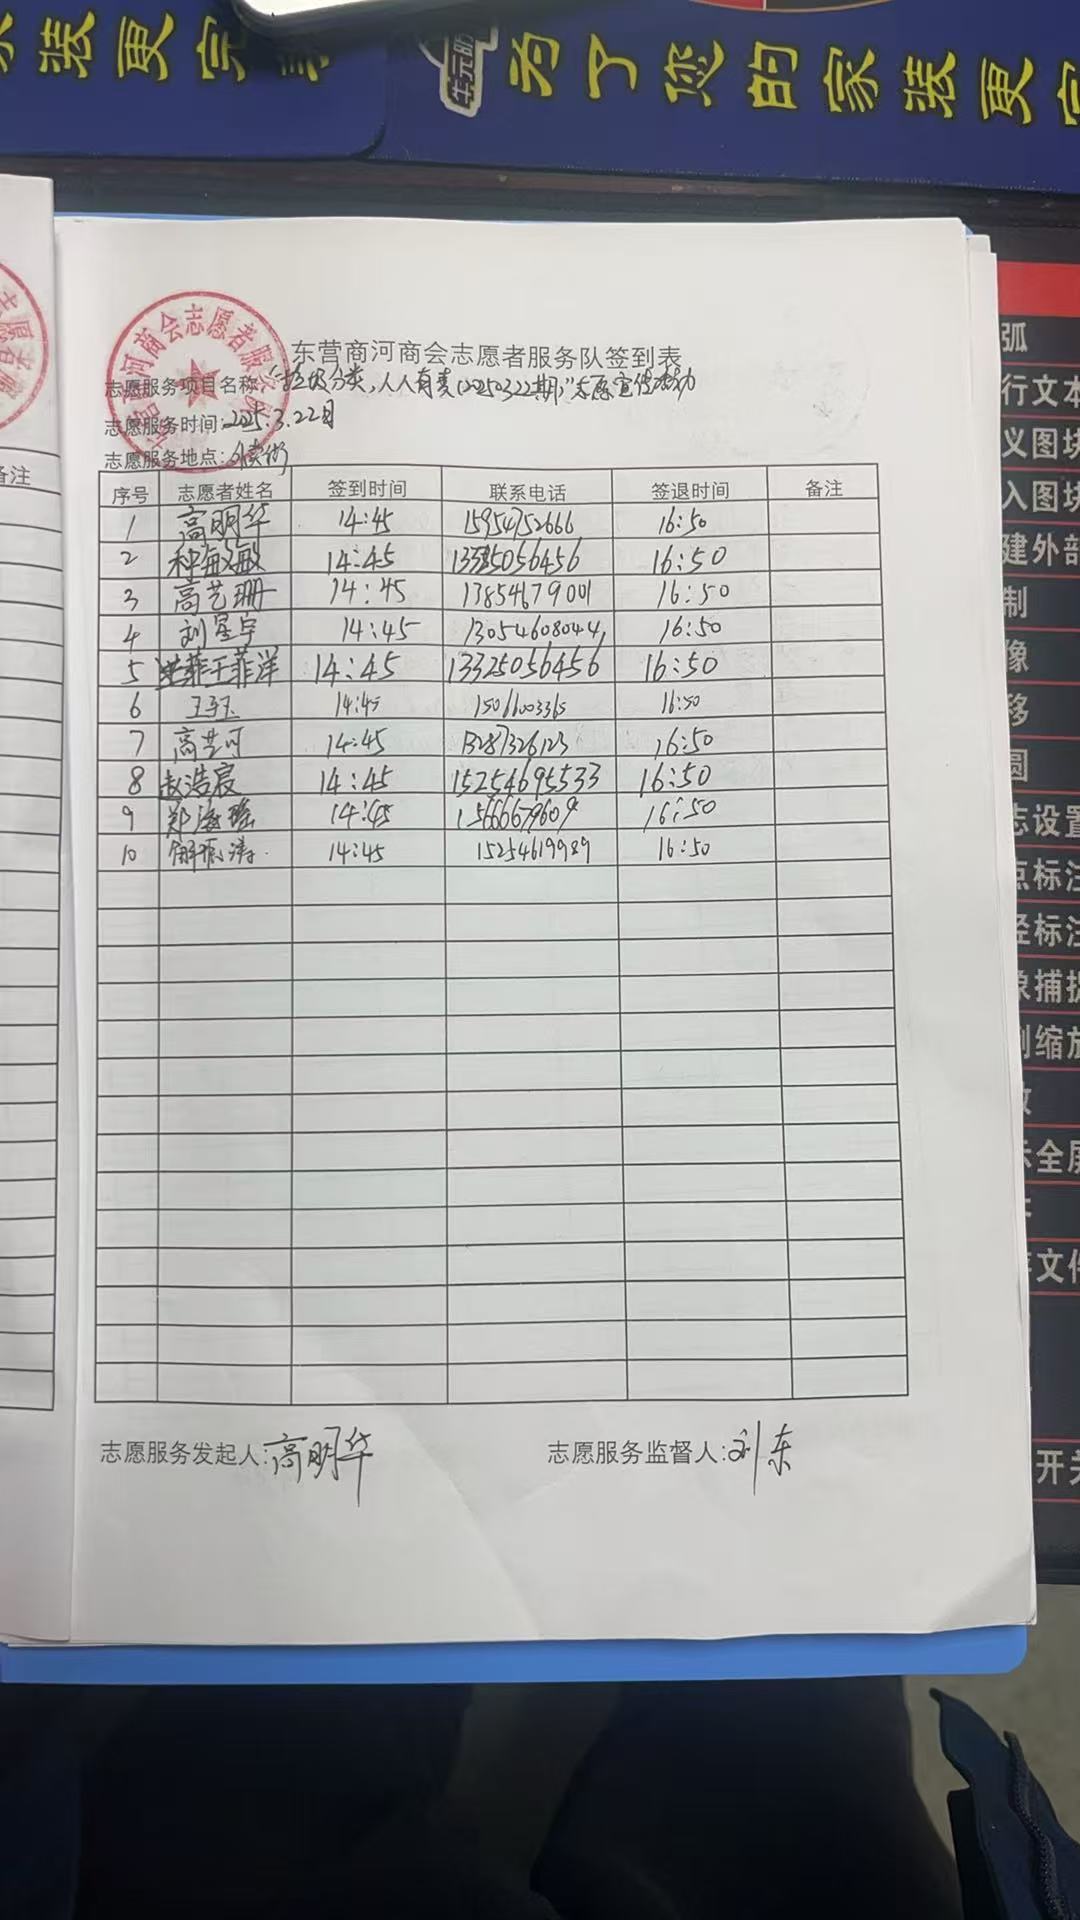 装更完
为了您的家装更完
东营商河商会志愿者服务队签到表
志愿服务项目名称:“垃圾分类,人人有责(20250322期)”志愿宣传活动
志愿服务时间:2025.3.22日
志愿服务地点:
序号 志愿者姓名 签到时间 联系电话 签退时间 备注
1 高明华 14:45 15954752666 16:50
2 种敏敏 14:45 056456 16:50
3 高艺珊 14:45 13854679001 16:50
4 刘星宇 14:45 13054608044 16:50
5 王菲洋 14:45 13325056456 16:50
6 14:45 15066003365 16:50
7 高艺可 14:45 13287326123 16:50
8 赵浩宸 14:45 15254695533 16:50
9 郑海瑶 14:45 16:50
10 14:45 15254619989 16:50
志愿服务发起人:高明华 志愿服务监督人:刘东
备注
弧
行文本
义图块
入图块
建外部
制
像
移
圆
志设置
点标注
径标注
象捕捉
缩放
示全屏
文件
开关